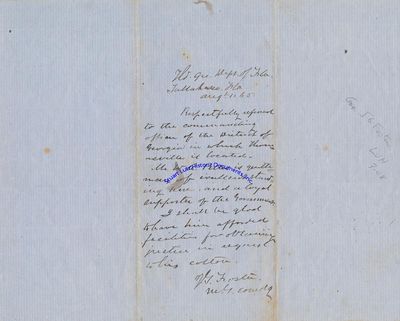 Hd. Qrs. Dept. of Fla.
Tallahassee, Fla
Aug 65
Respectfully referred
to the commanding
officer of the District of
Georgia in which Thom-
asville is located.
Mr. is quite
here, and a loyal
supporter of the Government
I shall be glad
to have him afforded
facilities for obtaining
justice in regard
to his cotton.
J.G. Foster